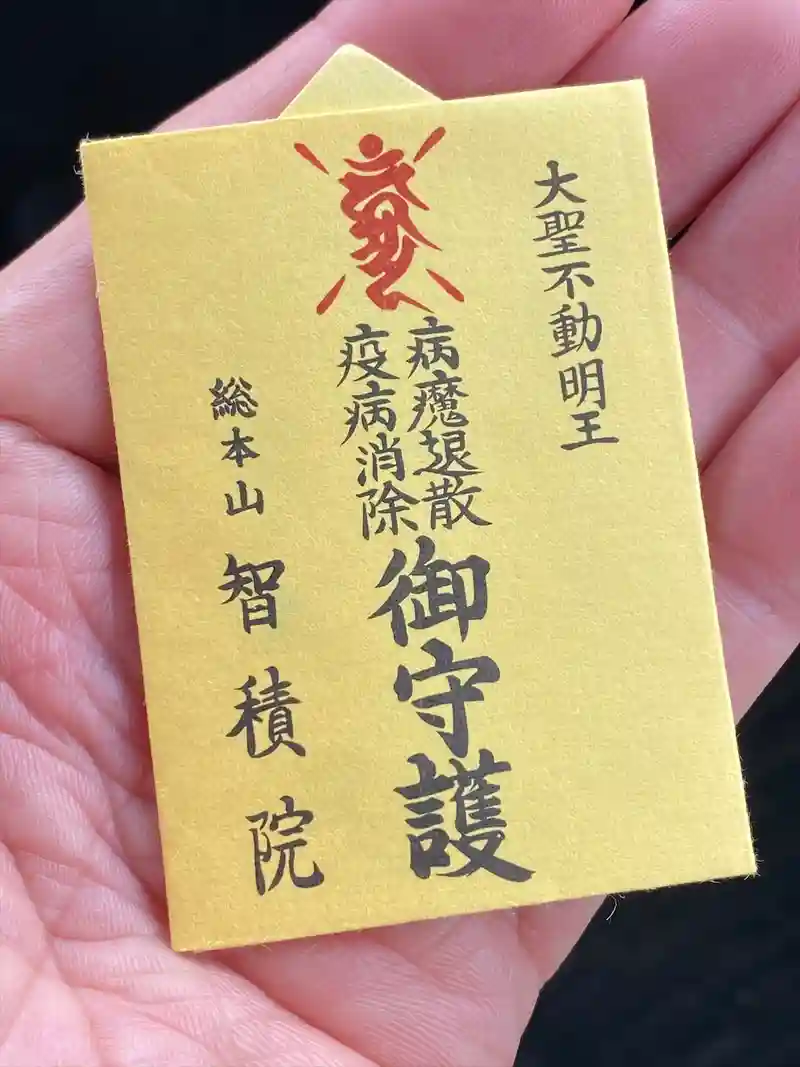 大聖不動明王
病魔退散
疫病消除
御守護
総本山 智積院